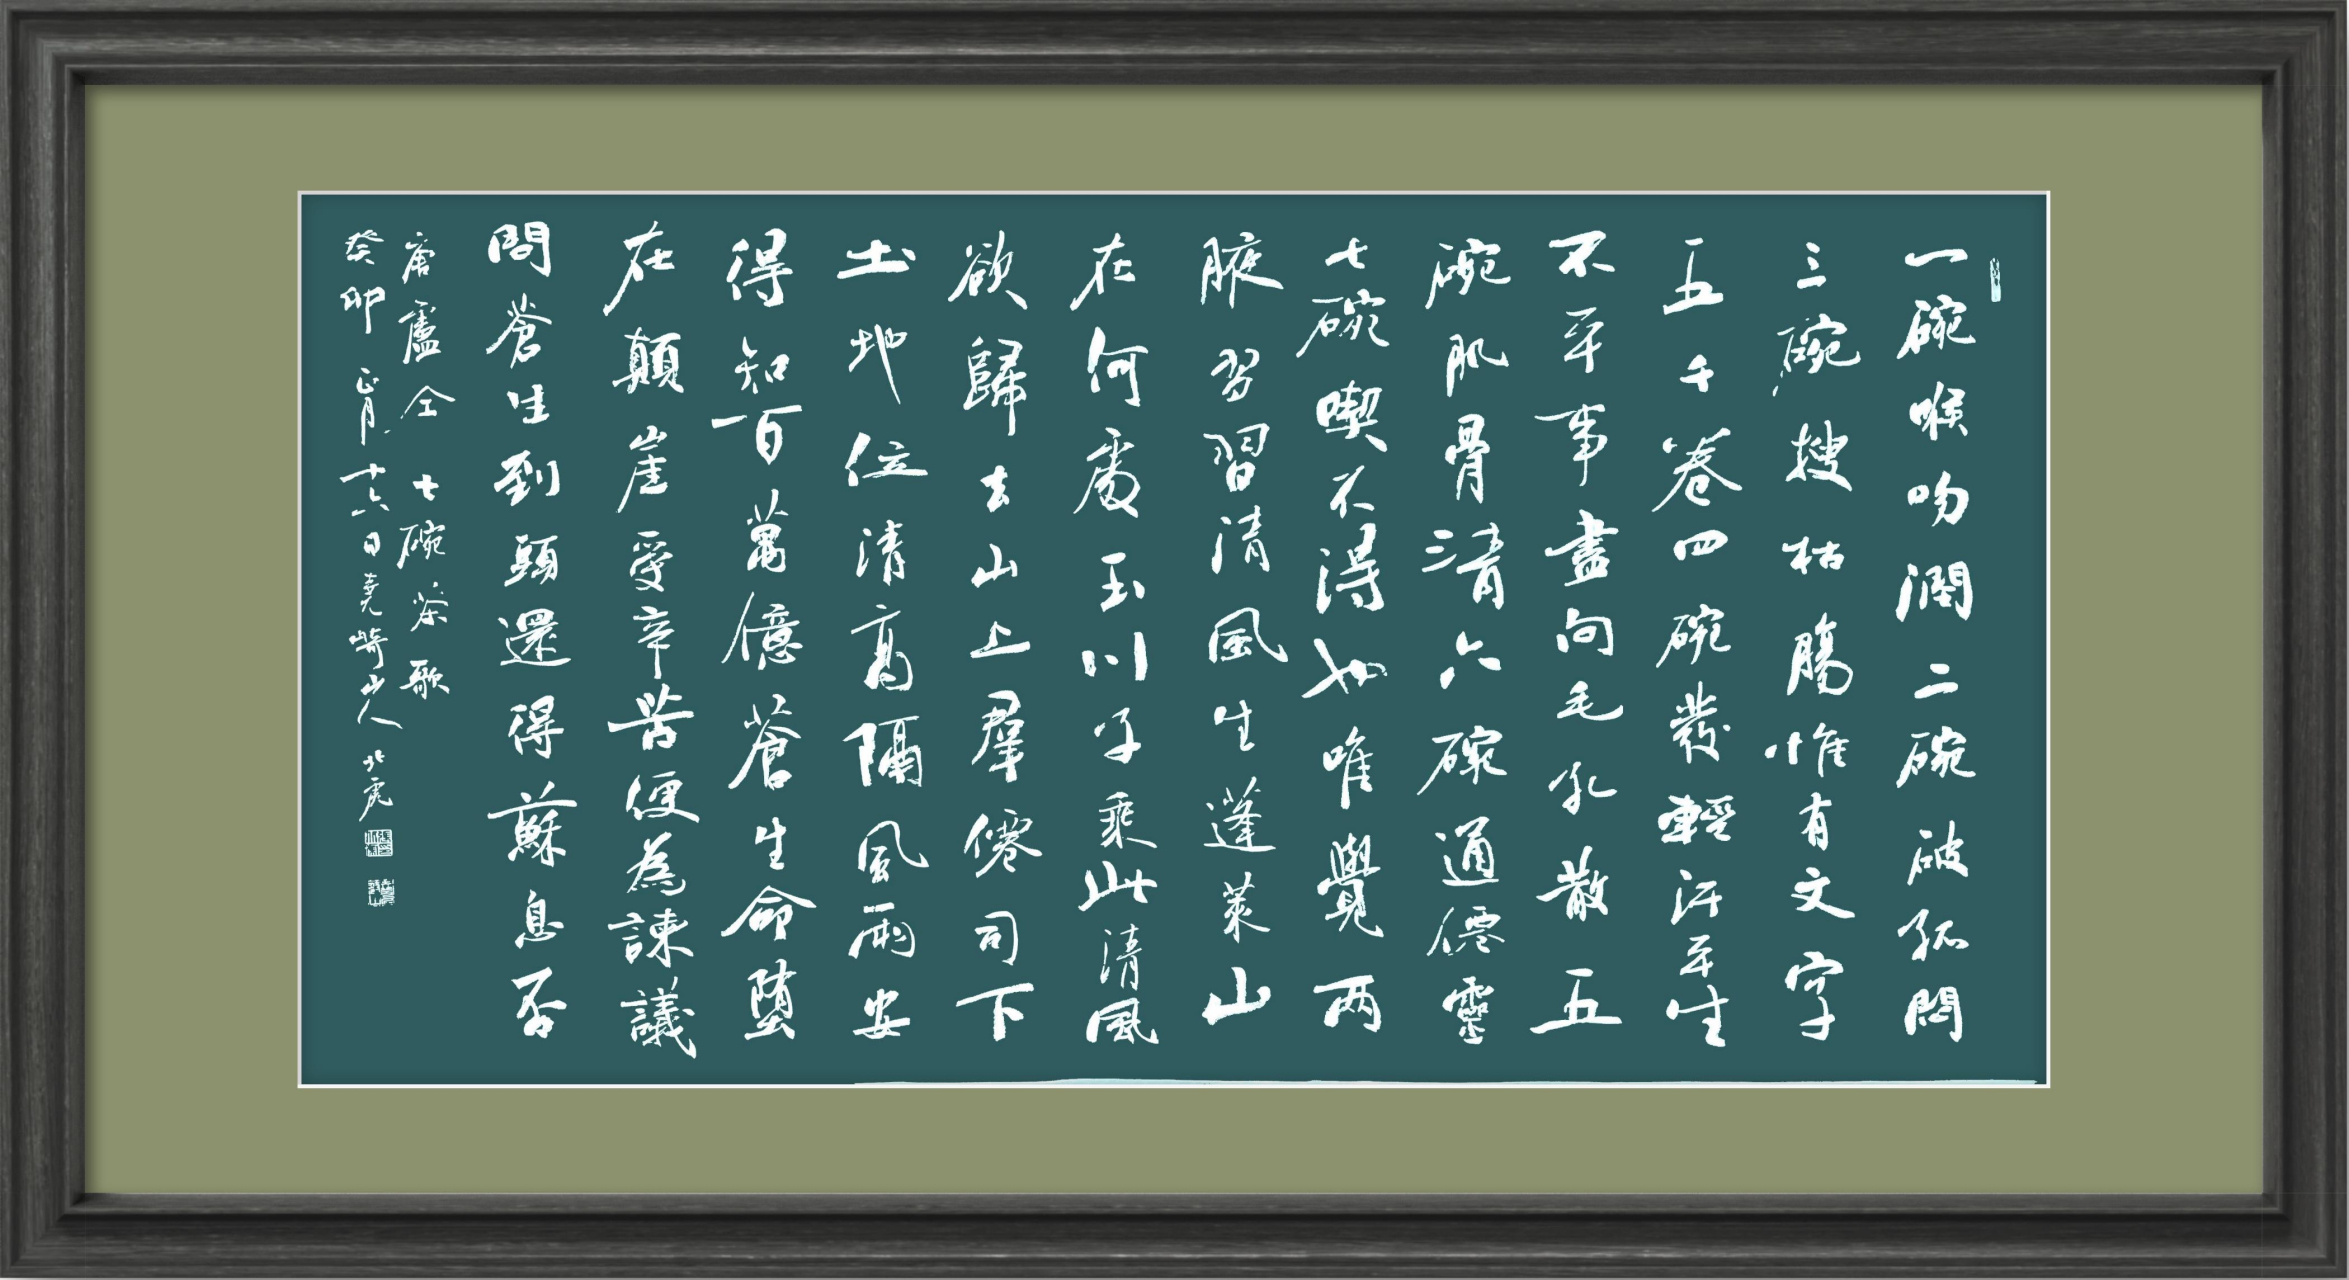 一碗喉吻潤二碗破孤悶
三碗搜枯腸惟有文字
五千卷四碗發輕汗平生
不平事盡向毛孔散五
碗肌骨清六碗通僊靈
七碗喫不得也唯覺兩
腋習習清風生蓬萊山
在何處玉川子乘此清風
欲歸去山上羣僊司下
土地位清高隔風雨安
得知百萬億蒼生命墮
在顛崖受辛苦便為諫議
問蒼生到頭還得蘇息否
唐盧仝七碗茶歌
癸卯正月十六日堯崎山人北虎